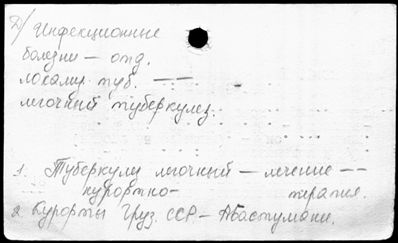 Д/ Инфекционные
болезни — отд.
локализ. туб. — —
легочный туберкулез.
1. Туберкули легочный — лечение — —
курортно- терапия.
2. Курорты Груз. ССР — Абастумани.